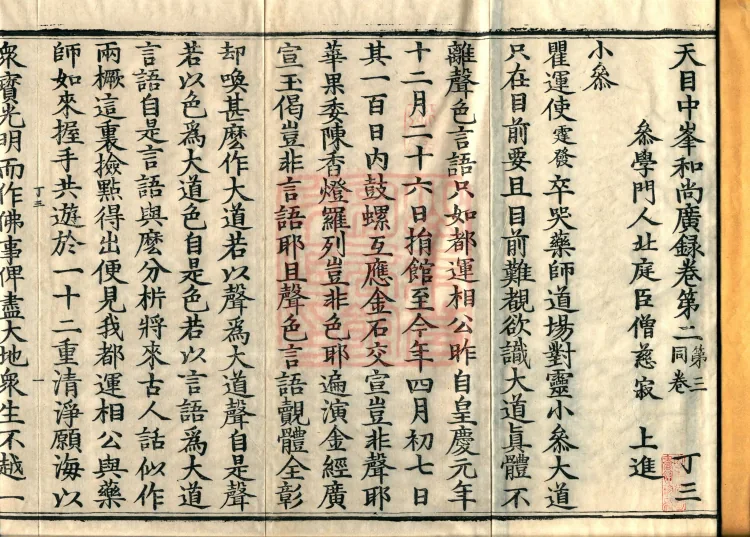 天目中峯和尚廣録卷第二 第三同卷 丁三
參學門人北庭臣僧慈寂 上進
小參
瞿運使霆發卒哭藥師道場對靈小參大道
只在目前要且目前難覩欲識大道真體不
離聲色言語只如都運相公昨自皇慶元年
十二月二十六日捐館至今年四月初七日
其一百日内鼓螺互應金石交宣豈非聲耶
華果委陳香燈羅列豈非色耶遍演金經廣
宣玉偈豈非言語耶且聲色言語覿體全彰
却喚甚麽作大道若以聲爲大道聲自是聲
若以色爲大道色自是色若以言語爲大道
言語自是言語與麽分析將來古人話似作
兩橛這裏撿點得出便見我都運相公與藥
師如來握手共遊於一十二重清淨願海以
丁三
一
衆寶光明而作佛事俾盡大地衆生不越一